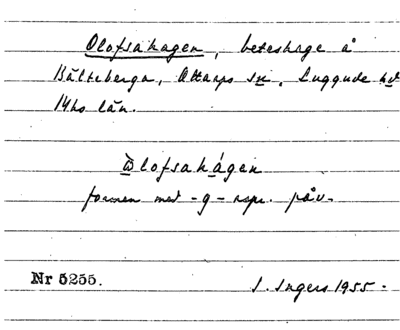 Olofsahagen, beteshage å
Bälteberga, Ottarps sn, Luggude hd
Mhs län.
ὼlofsahágen
formen med -g- ... påv.
Nr 5255.
I. Ingers 1955-